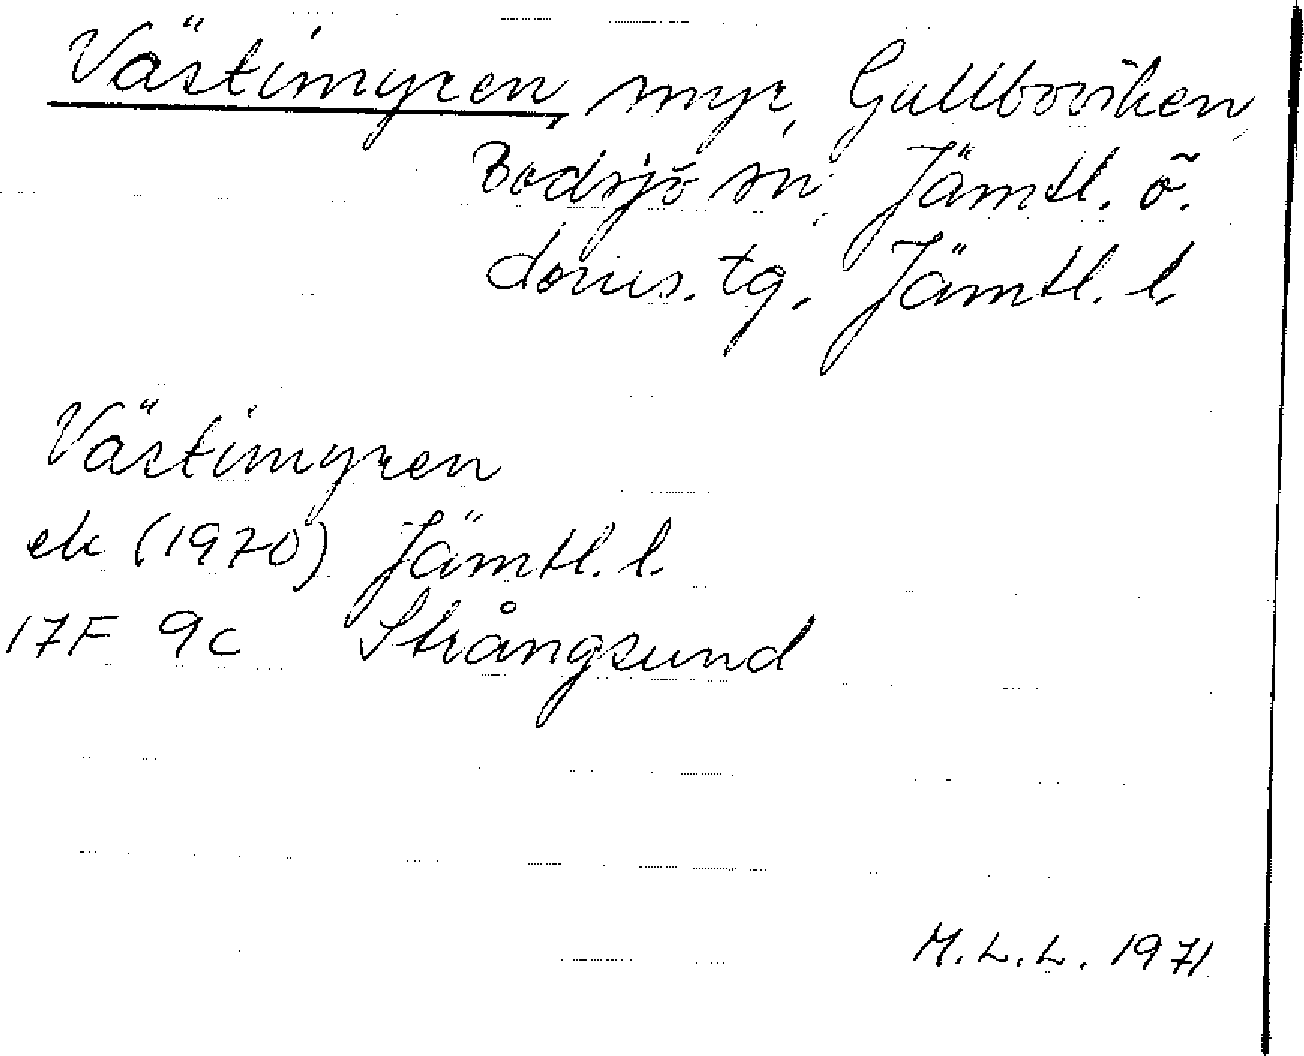 Västimyren, myr, Gullboviken,
Bodsjö sn, Jämtl. ö.
doms. tg. Jämtl. l.
Västimyren
ek (1970) Jämtl. l.
17F 9c Strångsund
M.L.L. 1971